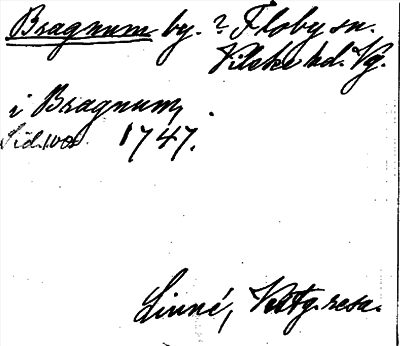 Bragnum by. ? Floby sn.
Vilske hd. Vg.
i Bragnum,
Sid. 100
1747.
Linné, Västg. resa.